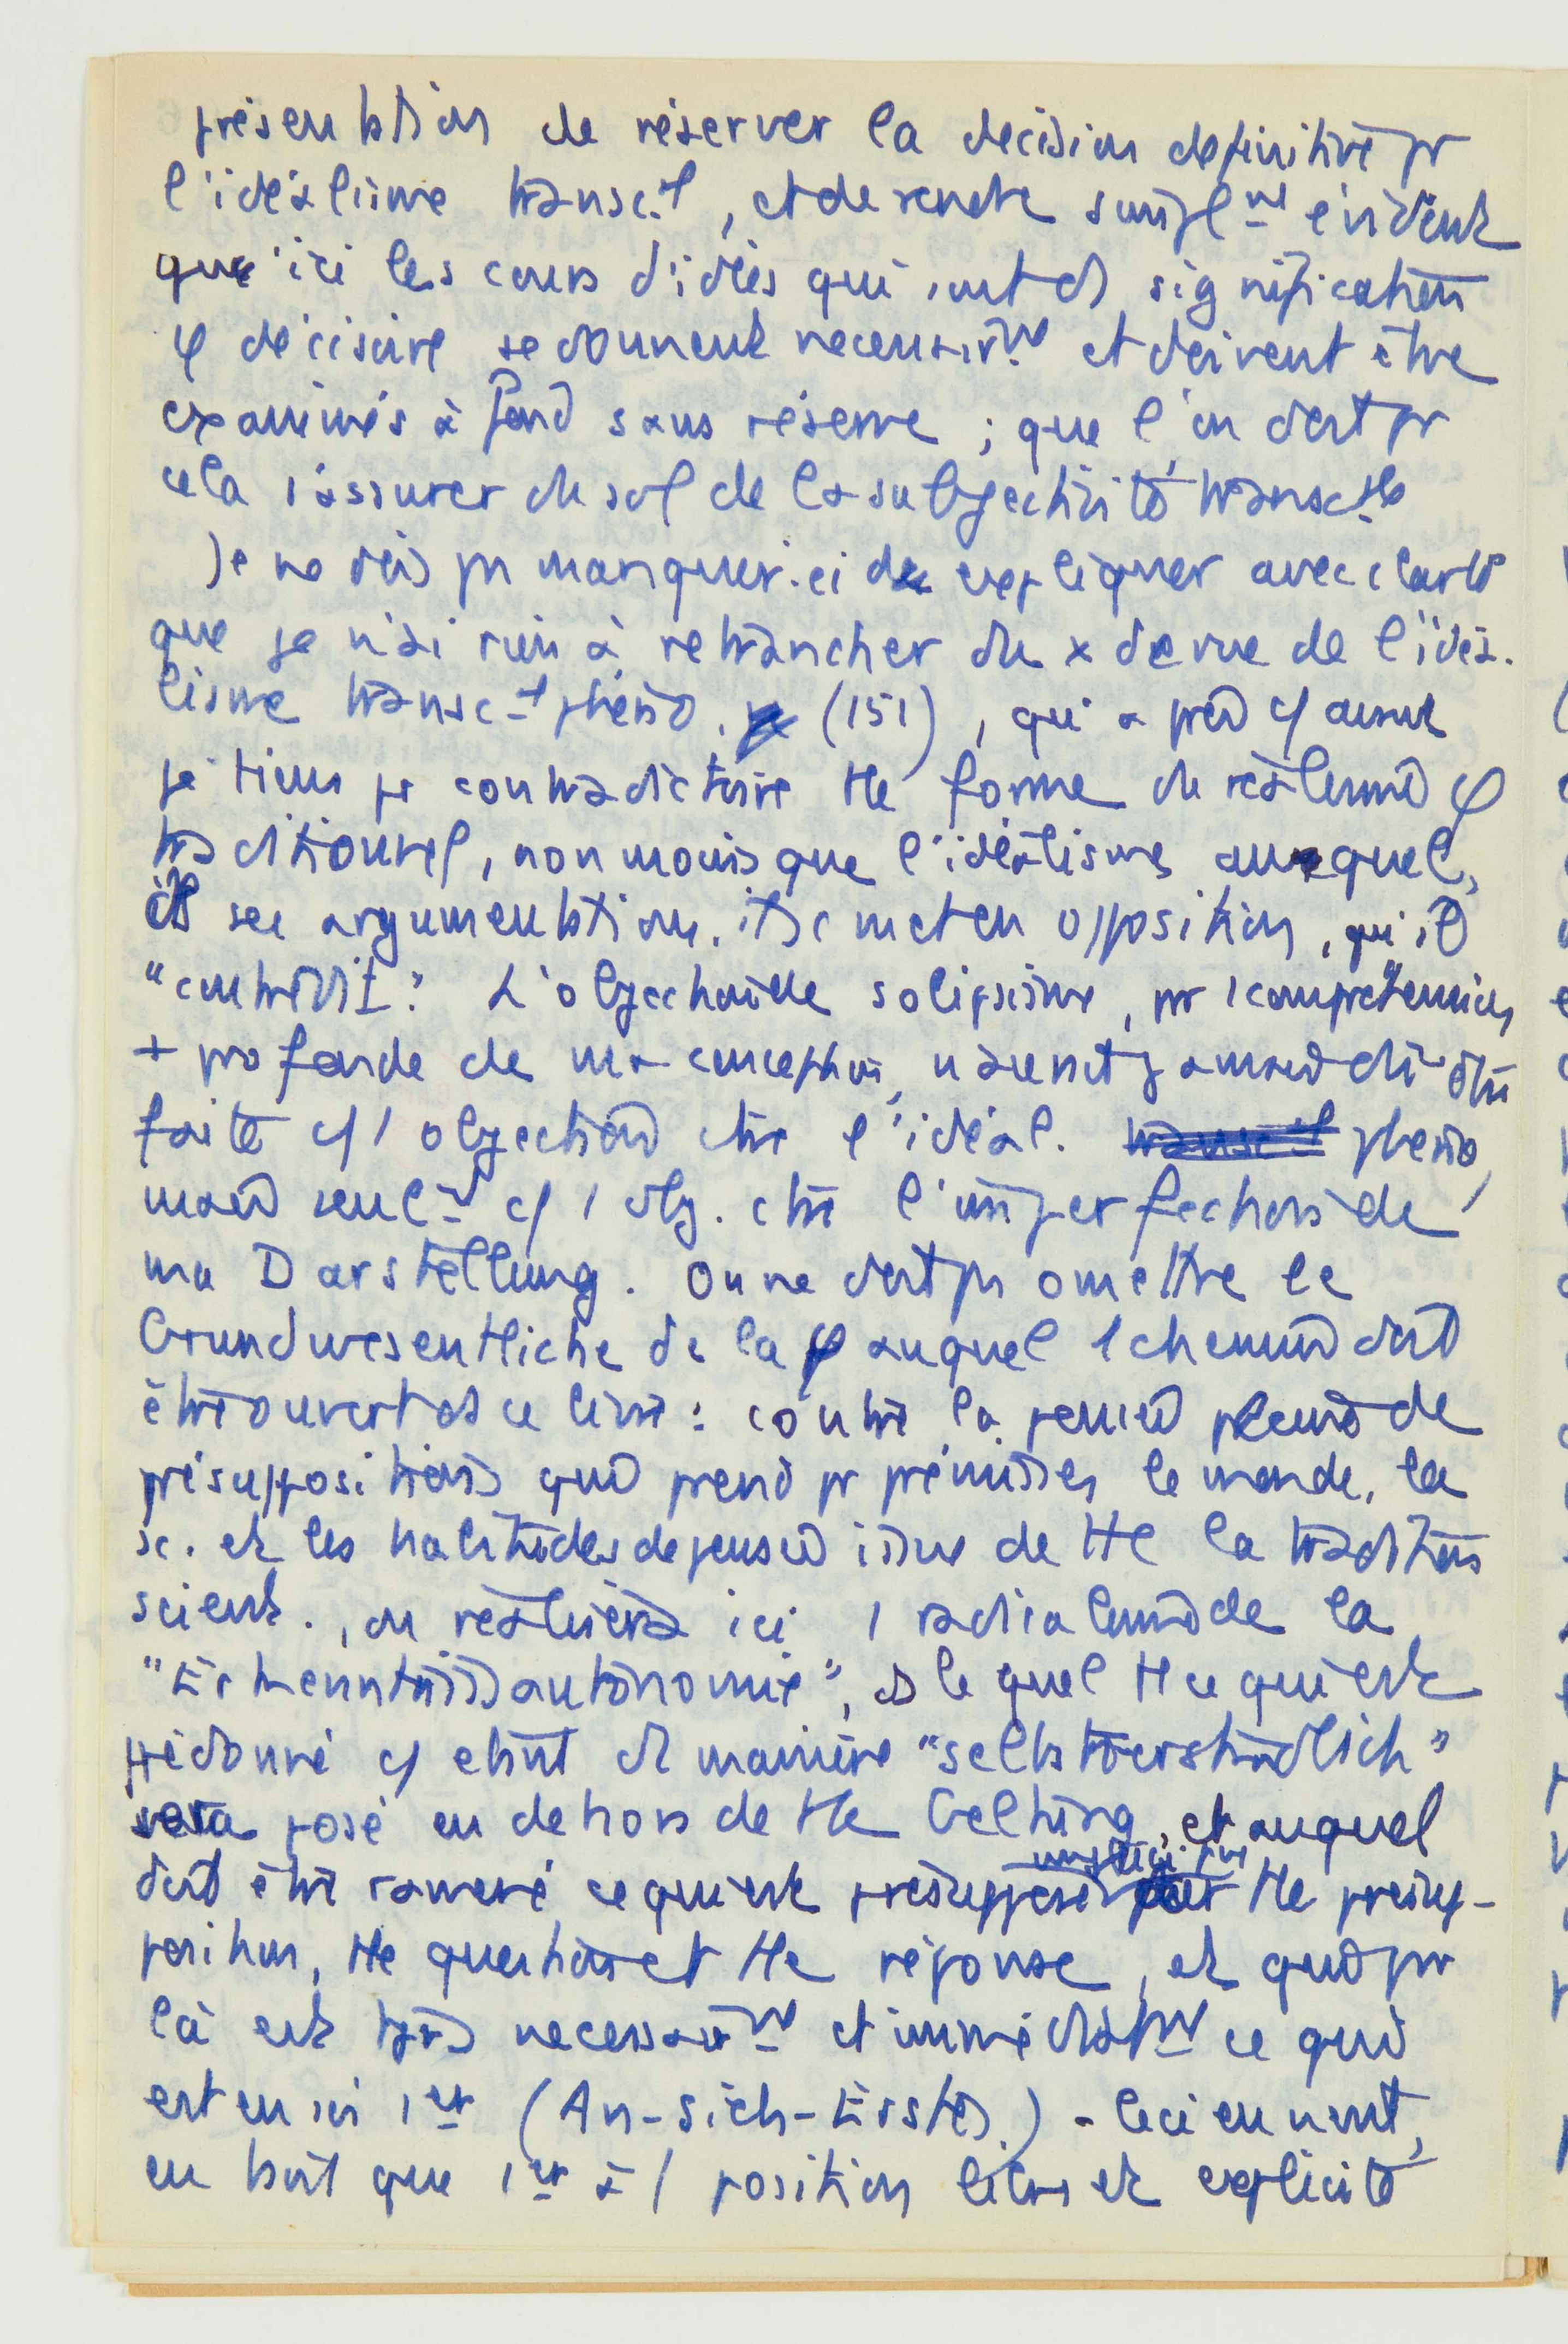 présentation de réserver la décision définitive pr
l'idéalisme transc.l, et de rendre simplnt évident
que ici les cours d'idées qui ont ds signification
φ décisive se donnent necessairnt et doivent être
examinés à fond sans réserve ; que l'on doit pr
cela s'assurer du sol de la subjectivité transc.le
Je ne dois pas manquer ici de expliquer avec clarté
que je n'ai rien à retrancher du x de vue de l'idéa-
lisme transc-l phéno. (151), qui
je tiens pr contradictoire tte forme de réalisme φ
traditionnel, non moins que l'idéalisme auquel,
ds ses argumentations, il se met en opposition, qu'il
"contredit". L'objection de solipsisme, pr 1 compréhension
+ profonde de ma conception, n'aurait jamais dû être
faite c/ 1 objection ctre l'idéal. transc-l phéno,
mais seult c/ 1 obj. ctre l'imperfection de
ma Darstellung. On ne doit pas omettre le
Grundwesentliche de la φ auquel 1 chemin doit
être ouvert ds ce livre : contre la pensée pleine de
présuppositions qui prend pr prémisses le monde, la
sc. et les habitudes de pensée issue de tte la tradition
scient., on réalisera ici 1 radicalisme de la
"Erkenntnisautonomie", ds lequel tt ce qui est
prédonné c/ étant de manière "selbstverständlich"
sera posé en dehors de tte Geltung, et auquel
doit être ramené ce qui est présupposé implicitnt par tte présup-
position, tte question et tte réponse, et qui pr
là est necessairnt et immédiatnt ce qui
est en soi 1er (An-sich-Erstes) - Ceci en vient,
en tant que 1er à 1 position libre et explicite